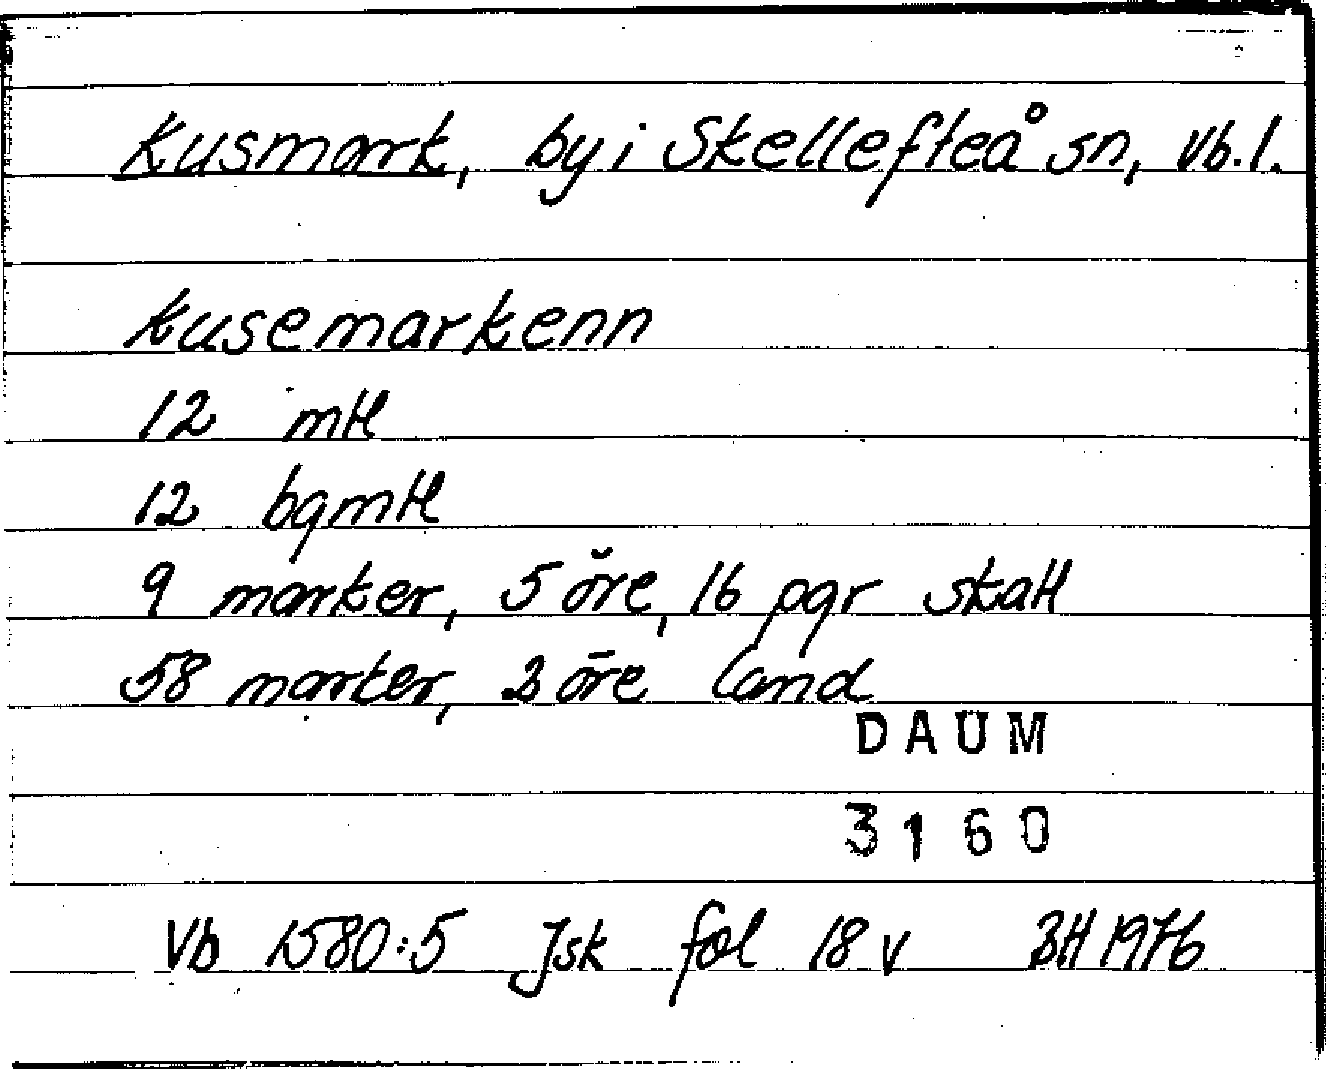 Kusmark, by i Skellefteå sn, Vb. l.
Kusemarkenn
12 mtl
12 bgmtl
9 marker, 5 öre, 16 pgr skatt
58 marker, 2 öre land
DAUM
3160
Vb 1580:5 Jsk fol 18 v BH 1976